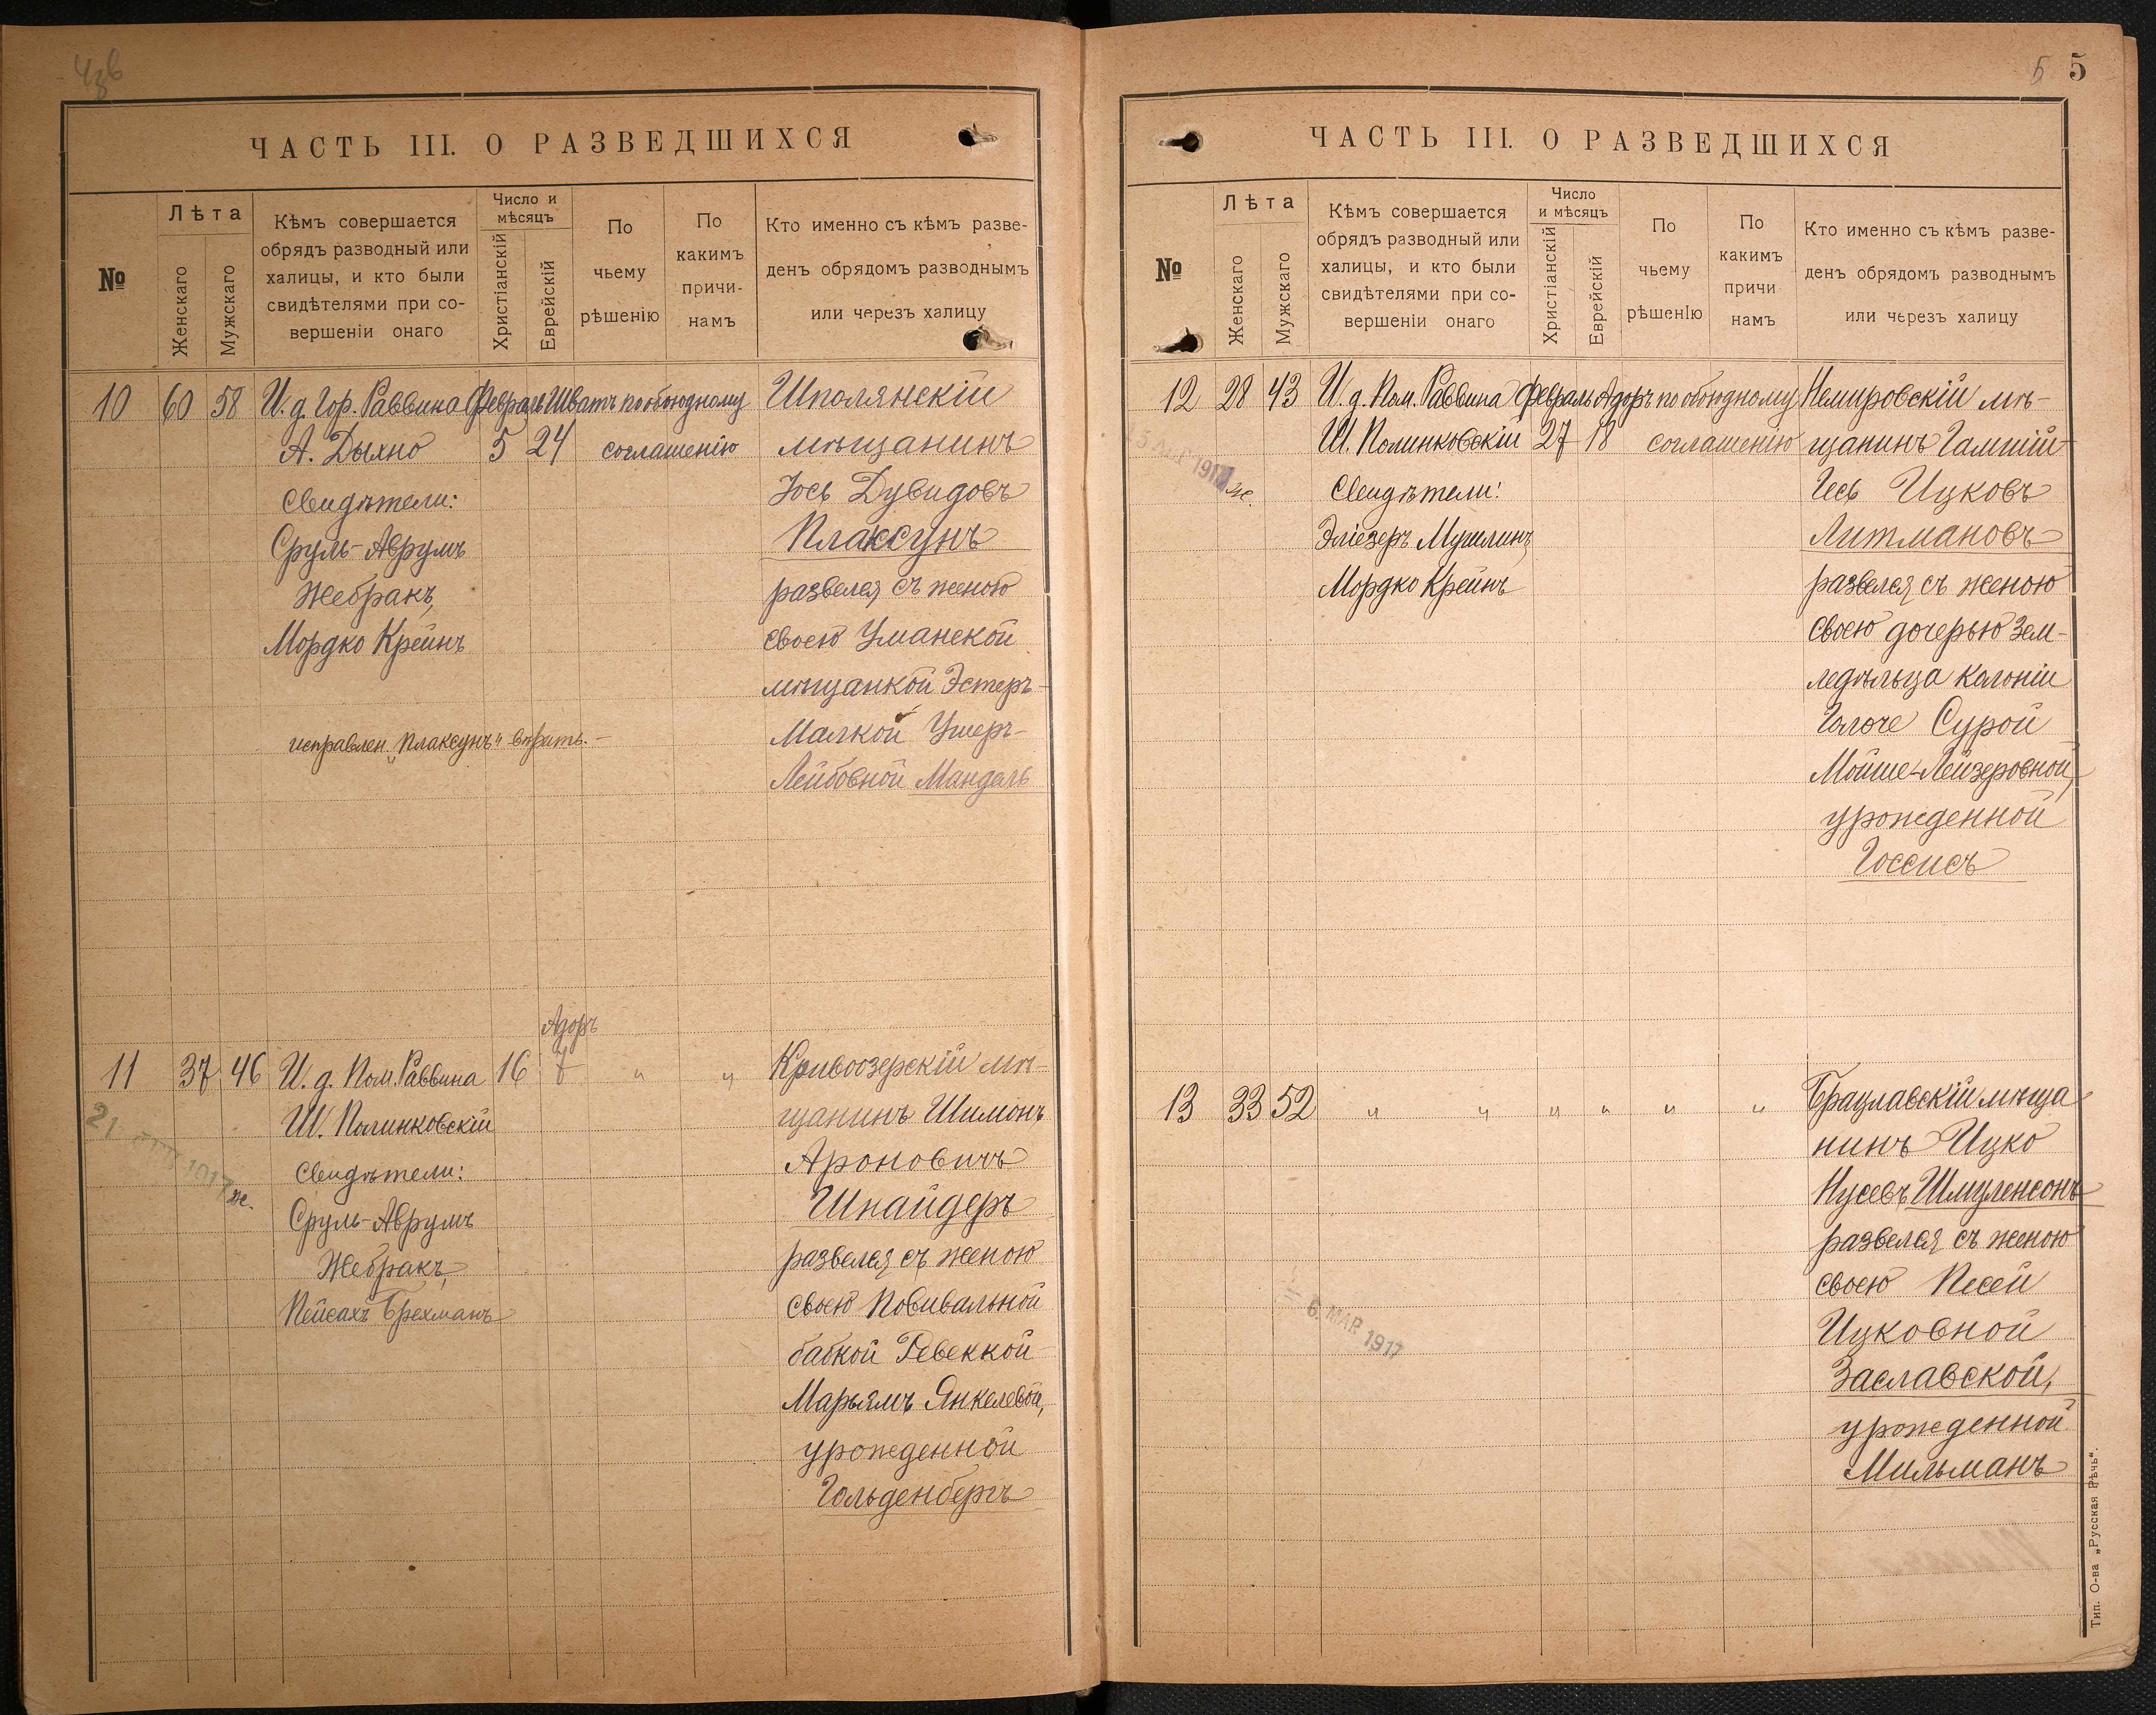 ЧАСТЬ III. О РАЗВЕДШИХСЯ
№
Лѣта
Женскаго
Мужскаго
Кѣмъ совершается
обрядъ разводный или
халицы, и кто были
свидѣтелями при со-
вершеніи онаго
Число и
мѣсяцъ
Христіанскій
Еврейскій
По
чьему
рѣшенію
По
какимъ
причи-
намъ
Кто именно съ кѣмъ разве-
денъ обрядомъ разводнымъ
или черезъ халицу
10 60 58 И. д. Гор. Раввина Февраль Шватъ по обоюдному Шполянскій
А. Дыхно 5 24 соглашенію мѣщанинъ
Свидѣтели: Іось Дувидовъ
Сруль-Аврумъ Плаксунъ
Жебракъ, развелся съ женою
Мордко Крейнъ своею Уманской
мѣщанкой Эстеръ-
исправлен. „Плаксунъ" вѣрить.- Малкой Ушеръ-
Лейбовной Мандель
Адоръ
11 37 46 И. д. Пом. Раввина 16 7 " " Кривоозерскій мѣ-
Ш. Полинковскій щанинъ Шимонъ
Свидѣтели: Ароновичъ
Сруль-Аврумъ Шнайдеръ
Жебракъ, развелся съ женою
Пейсахъ Брехманъ своею Повивальной
бабкой Ревеккой-
Марьямъ Янкелевой,
урожденной
Гольденбергъ
21 1917
ж.
5 5
ЧАСТЬ III. О РАЗВЕДШИХСЯ
№
Лѣта
Женскаго
Мужскаго
Кѣмъ совершается
обрядъ разводный или
халицы, и кто были
свидѣтелями при со-
вершеніи онаго
Число
и мѣсяцъ
Христіанскій
Еврейскій
По
чьему
рѣшенІю
По
какимъ
причи
намъ
Кто именно съ кѣмъ разве-
денъ обрядомъ разводнымъ
или черезъ халицу
12 28 43 И. д. Пом. Раввина Февраль Адоръ по обоюдному Немировскій мѣ-
Ш. Полинковскій 27 18 соглашенію щанинъ
Свидѣтели: Ицковъ
Эліезеръ Литмановъ
Мордко Крейнъ развелся съ женою
своею дочерью зем-
ледѣльца колоніи
Сурой
Мойше-Лейзеровной,
урожденной
Госсисъ
1917
ж.
13 33 52 " " " " " " Брацлавскій мѣща
нинъ Ицко
Нусевъ Шмуленсонъ
развелся съ женою
своею Песей
Ицковной
Заславской,
урожденной
Мильманъ
6. MAR 1917
Тип. О-ва „Русская Рѣчь".